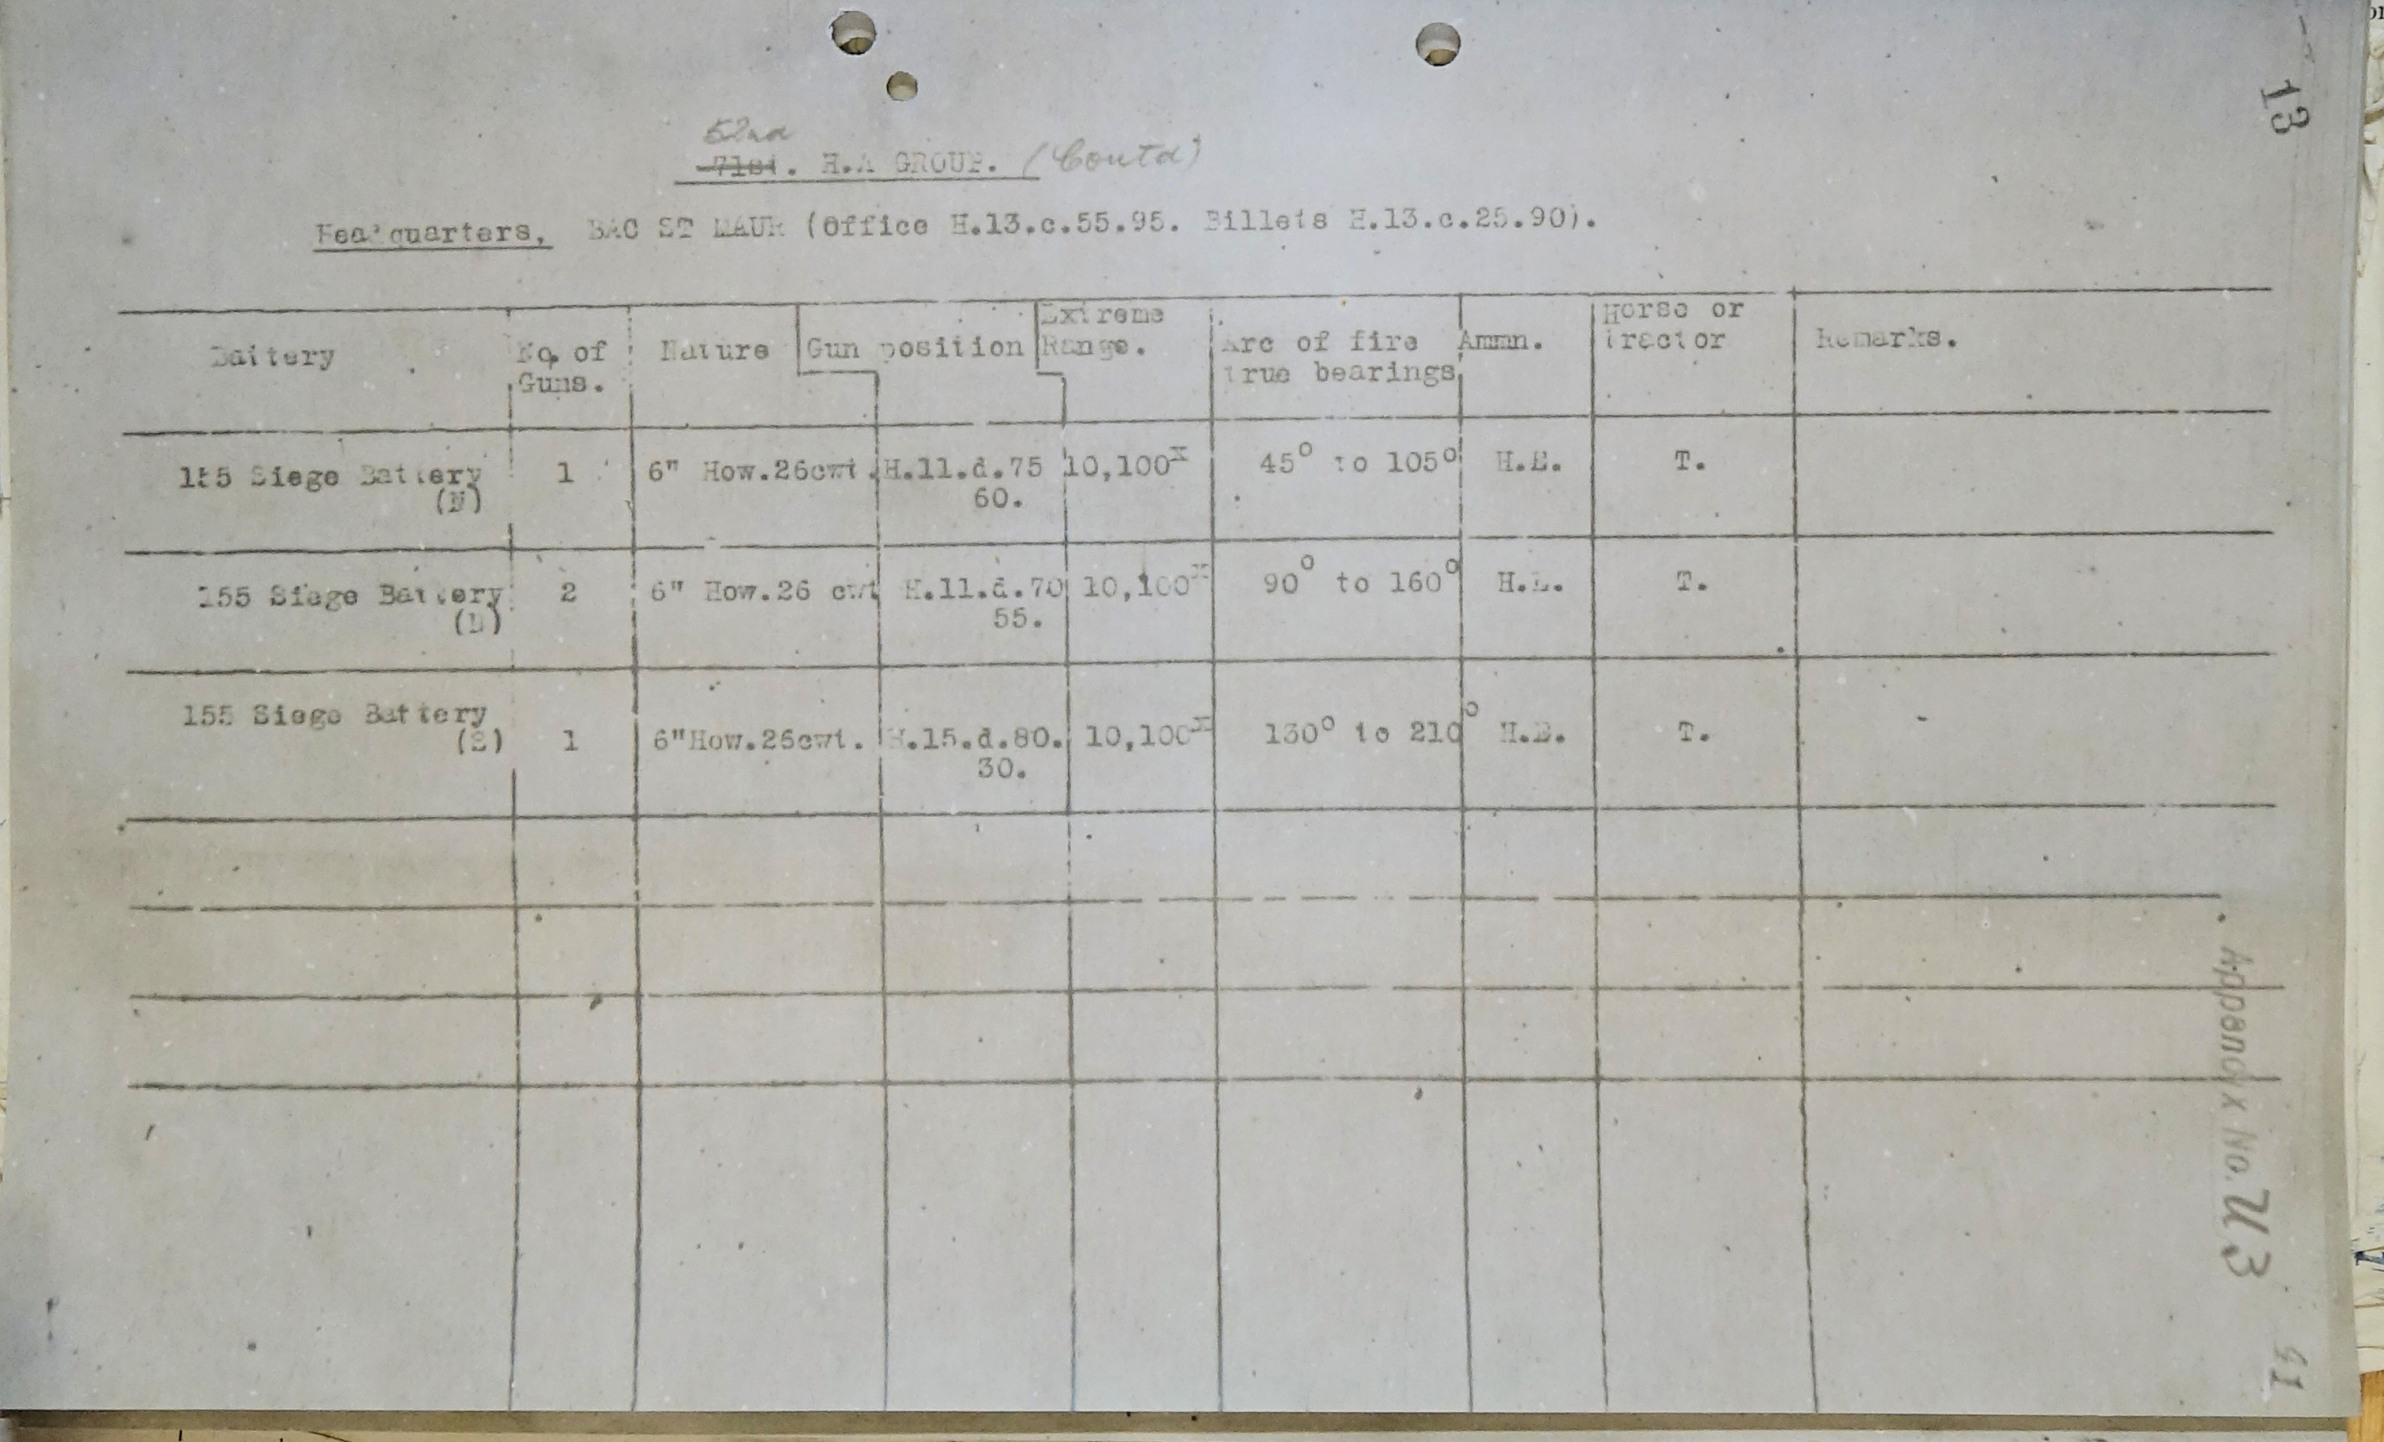 13
52nd
71st. H.A GROUP. (Contd)
Headquarters, BAC ST MAUR (Office H.13.c.55.95. Billets H.13.c.25.90).
Battery No. of Guns. Nature Gun position Extreme Range. Arc of fire true bearings Ammn. Horse or Tractor Remarks.
155 Siege Battery 1 6" How.26cwt. H.11.d.75 10,100x 45° to 105° H.E. T.
60.
155 Siege Battery 2 6" How.26 cwt H.11.d.70 10,100x 90° to 160° H.E. T.
55.
155 Siege Battery
1 6"How.26cwt. H.15.d.80. 10,100x 130° to 210° H.E. T.
30.
Appendix No. U3